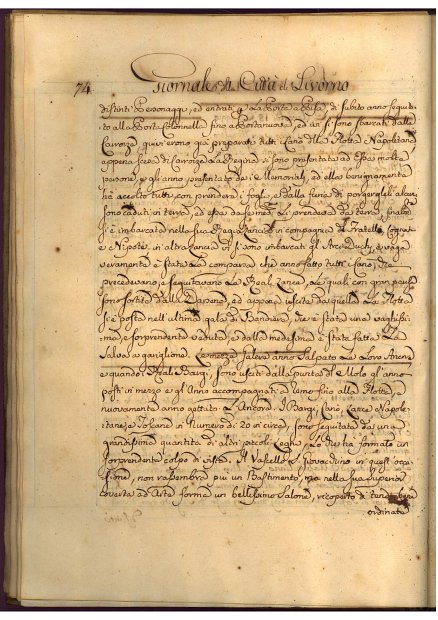 74 Giornale della Città di Livorno
distinti Personaggi, ed entrati p. la Porta a Pisa, di subito anno seguita-
to alla Porta Colonnella fino a Portanuova, ed ivi si sono sbarcati dalle
Carrozze, quivi erono già preparate tutti i Lance della Flotta Napolitana
appena scesa di Carrozza la Regina si sono presentata ad essa molte
persone, e gli anno presentato dei Memoriali, ed ella benignamente
ha accolto tutti con prendere i fogli, e dalla furia di porgergleli alcuni
sono caduti in terra, ed essa da se medes.
si è imbarcata nella sua in compagnia di Fratello, Cognata
e Nipote, in altra Lancia vi si sono imbarcati gl'Arciduchi, e
veramente è stata la comparsa che anno fatto tutti i Lance, che
precedevano, e seguitavano la Real Lance, le quali con gran pausa
sono sortite dalla Darsena, ed appena uscita da quella la Flotta
si è posta nell'ultima gala di Bandiera, che è stata una vaghissi-
:ma, e sorprendente veduta, e dalla medesima è stata fatta la
Salva a gariglione. Le mezze Galere anno Salpato le loro Ancore
e quando i Reali Bargi, sono usciti dalla punta del Molo gl'anno
posti in mezzo e gli Anno accompagnati a remo fino alla Flotta, e
nuovamente anno gettato l'Ancora. I Bargi, Lance Napole-
tane, e Toscane in Numero di 20 in circa, sono seguitate da una
grandissima quantità di altri piccoli Legni, lo che ha formato un
sorprendente colpo di vista. Il Vascello si trovavano in quest'occa-
sione, non rasembra più un Bastimento, ma nella sua superior
coverta ad Arte forma un bellissimo Salone, ricoperto di
ordinate